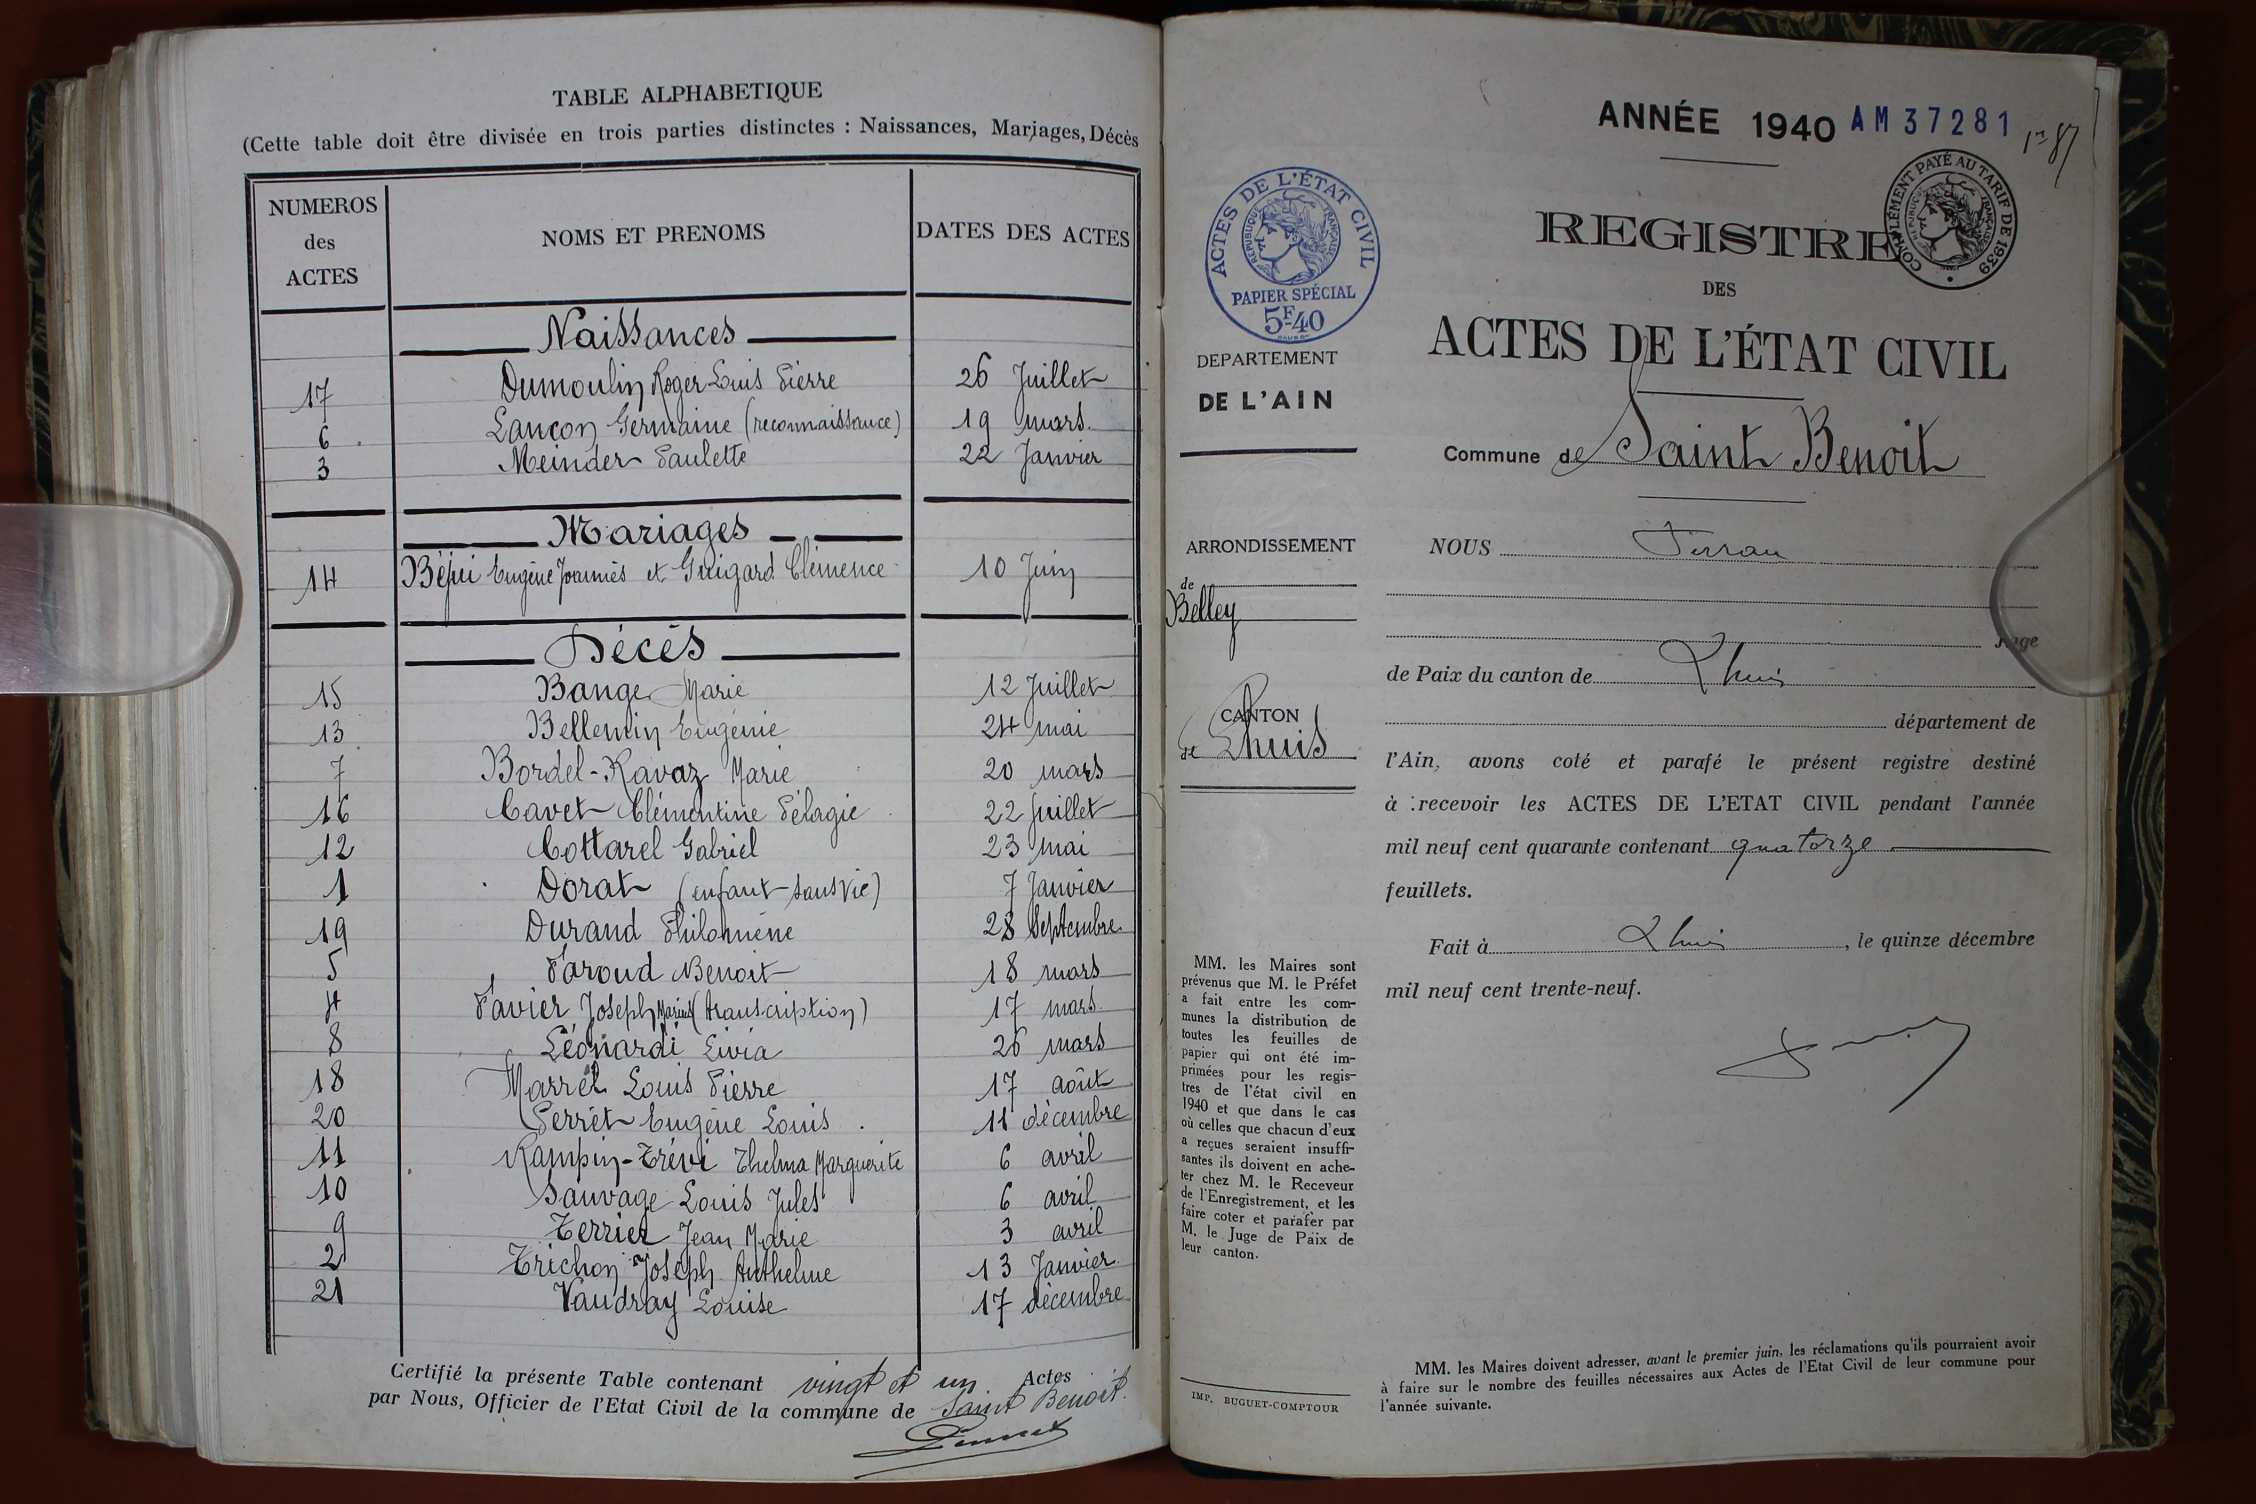 TABLE ALPHABETIQUE
(Cette table doit être divisée en trois parties distinctes : Naissances, Mariages, Décès
NUMEROS des ACTES NOMS ET PRENOMS DATES DES ACTES
Naissances
17 Dumoulin Roger Louis Pierre 26 Juillet
6 Lançon Germaine (reconnaissance) 19 mars
3 Meinder Paulette 22 Janvier
Mariages
14 Béjui Eugène Joannès et Guigard Clémence 10 Juin
Décès
15 Bange Marie 12 Juillet
13 Bellemin Eugénie 24 mai
7 Bordel-Ravaz Marie 20 mars
16 Cavet Clémentine Pélagie 22 Juillet
12 Cottarel Gabriel 23 mai
1 Dorat (enfant sans vie) 7 Janvier
19 Durand Philomène 28 Septembre
5 Faroud Benoit 18 mars
4 Favier Joseph Marius (transcription) 17 mars
8 Léonardi Livia 26 mars
18 Marrel Louis Pierre 17 août
20 Perret Eugène Louis 11 décembre
11 Rampin-Trévi Thelma Marguerite 6 avril
10 Sauvage Louis Jules 6 avril
9 Terrier Jean Marie 3 avril
2 Trichon Joseph Anthelme 13 Janvier
21 Vaudray Louise 17 décembre
Certifié la présente Table contenant vingt et un Actes
par Nous, Officier de l'Etat Civil de la commune de Saint Benoit.
ANNÉE 1940 AM 37281
COMPLÉMENT PAYÉ AU TARIF DE 1939
ACTES DE L'ÉTAT CIVIL
REPUBLIQUE FRANÇAISE
PAPIER SPÉCIAL
5F40
REGISTRE
DES
ACTES DE L'ÉTAT CIVIL
DEPARTEMENT
DE L'AIN
Commune de Saint Benoit
ARRONDISSEMENT
de
Belley
CANTON
de Lhuis
NOUS Ferran
Juge
de Paix du canton de Lhuis
département de
l'Ain, avons coté et parafé le présent registre destiné
à recevoir les ACTES DE L'ETAT CIVIL pendant l'année
mil neuf cent quarante contenant quatorze
feuillets.
Fait à Lhuis, le quinze décembre
mil neuf cent trente-neuf.
MM. les Maires sont
prévenus que M. le Préfet
a fait entre les com-
munes la distribution de
toutes les feuilles de
papier qui ont été im-
primées pour les regis-
tres de l'état civil en
1940 et que dans le cas
où celles que chacun d'eux
a reçues seraient insuffi-
santes ils doivent en ache-
ter chez M. le Receveur
de l'Enregistrement, et les
faire coter et parafer par
M. le Juge de Paix de
leur canton.
IMP. BUGUET-COMPTOUR
MM. les Maires doivent adresser, avant le premier juin, les réclamations qu'ils pourraient avoir
à faire sur le nombre des feuilles nécessaires aux Actes de l'Etat Civil de leur commune pour
l'année suivante.